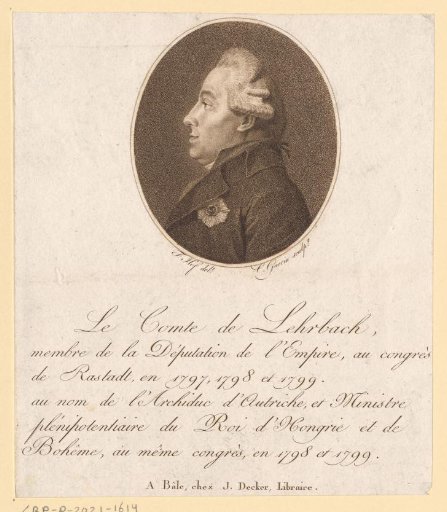 F. Hey delt.
C. Guerin sculpt.
Le Comte de Lehrbach,
membre de la Députation de l'Empire, au congrès
de Rastadt, en 1797, 1798 et 1799.
au nom de l'Archiduc d'Autriche, et Ministre
plénipotentiaire du Roi d'Hongrie et de
Bohème, au même congrès, en 1798 et 1799.
A Bâle, chez J. Decker, Libraire.
RP-P-2021-1614